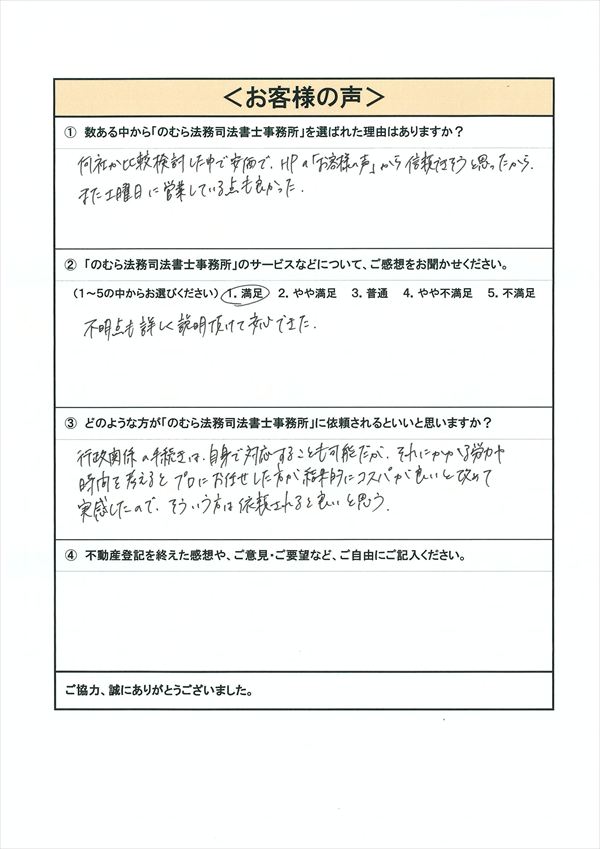 ＜お客様の声＞
① 数ある中から｢のむら法務司法書士事務所｣を選ばれた理由はありますか？
何社か比較検討した中で安価で、HPの「お客様の声」から信頼できそうと思ったから.
また土曜日に営業している点も良かった.
② ｢のむら法務司法書士事務所｣のサービスなどについて、ご感想をお聞かせください。
(1～5の中からお選びください) 1. 満足 2. やや満足 3. 普通 4. やや不満足 5. 不満足
不明点も詳しく説明頂けて安心できた.
③ どのような方が｢のむら法務司法書士事務所｣に依頼されるといいと思いますか？
行政関係の手続きは、自身で対応することも可能だが、それにかかる労力や
時間を考えるとプロにお任せした方が結果的にコスパが良いと改めて
実感したので、そういう方は依頼されると良いと思う.
④ 不動産登記を終えた感想や、ご意見・ご要望など、ご自由にご記入ください。
ご協力、誠にありがとうございました。